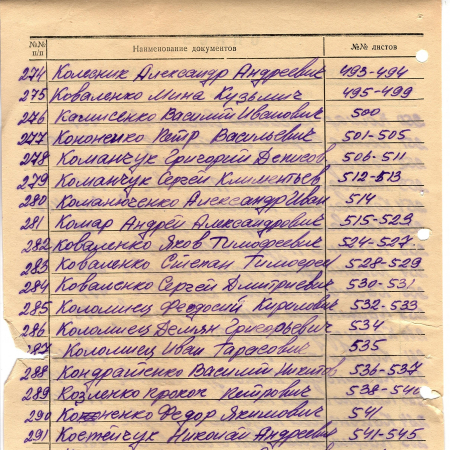 №№ п/п Наименование документов №№ листов
274 Колесник Александр Андреевич 493-494
275 Коваленко Мина Кузьмич 495-499
276 Камисенко Василий Иванович 500
277 Кононенко Петр Васильевич 501-505
278 Команчук Григорий Денисов. 506-511
279 Команчук Сергей Климентьев 512-513
280 Команюченко Александр Иван 514
281 Комар Андрей Александрович 515-529
282 Коваленко Яков Тимофеевич 524-527.
283 Коваленко Степан Тимофеев 528-529
284 Коваленко Сергей Дмитриевич 530-531
285 Коломиец Феодосий Кирилович 532-533
286 Коломиец Демян Григорьевич 534
287 Коломиец Иван Тарасович 535
288 Кондратенко Василий Никитов 536-537
289 Козленко Прокоп Петрович 538-540
290 Кононенко Федор Якимович 541
291 Костейчук Николай Андреевич 541-545